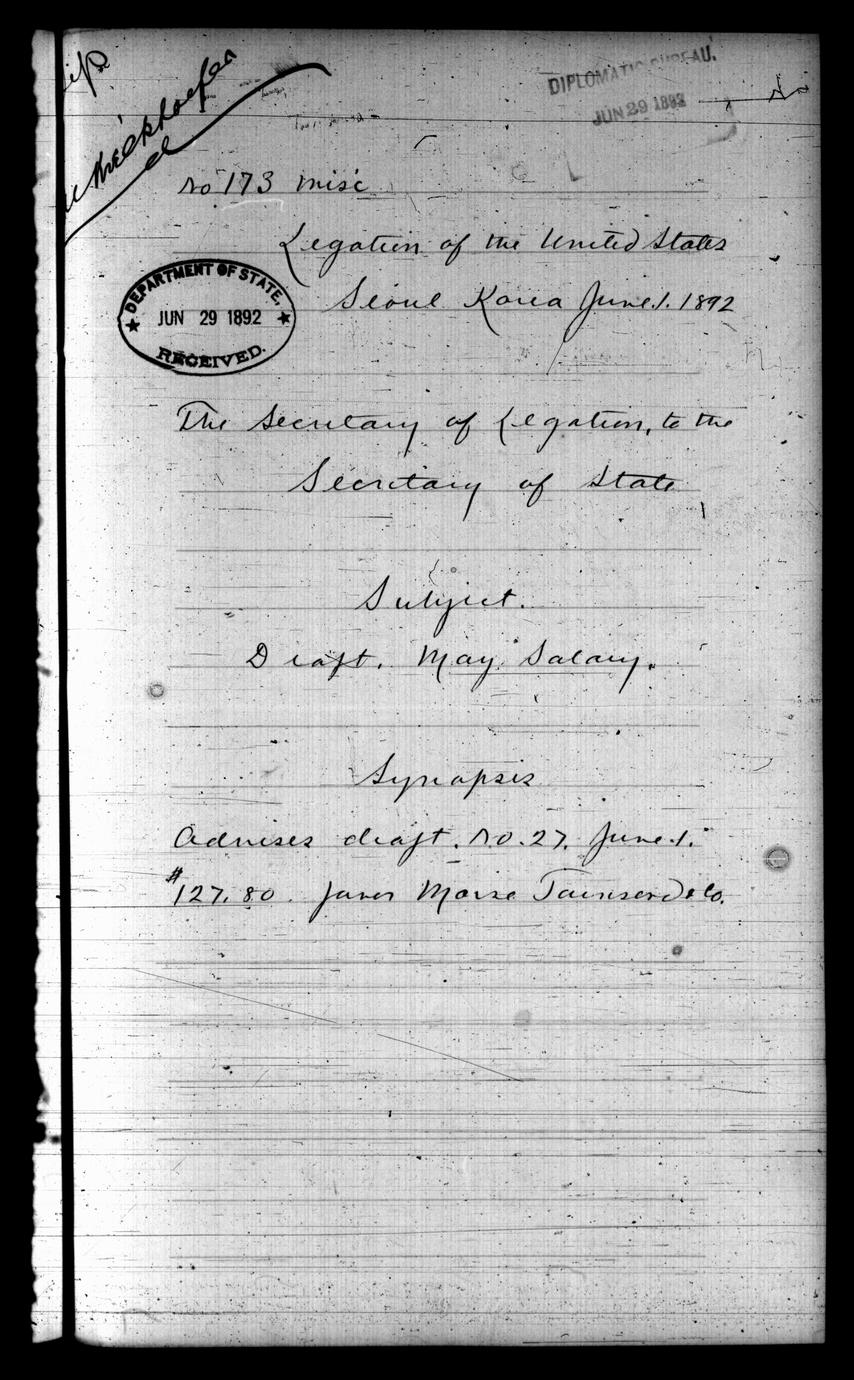 DIPLOMATIC BUREAU.
JUN 29 1892
No 173 Misc
Legation of the United States
Seoul Korea June. 1. 1892
DEPARTMENT OF STATE.
JUN 29 1892
RECEIVED.
The Secretary of Legation, to the
Secretary of State
Subject.
Draft. May Salary.
Synopsis
Advises draft. No. 27. June. 1.
$127.80. favor Morse Townsend & Co.